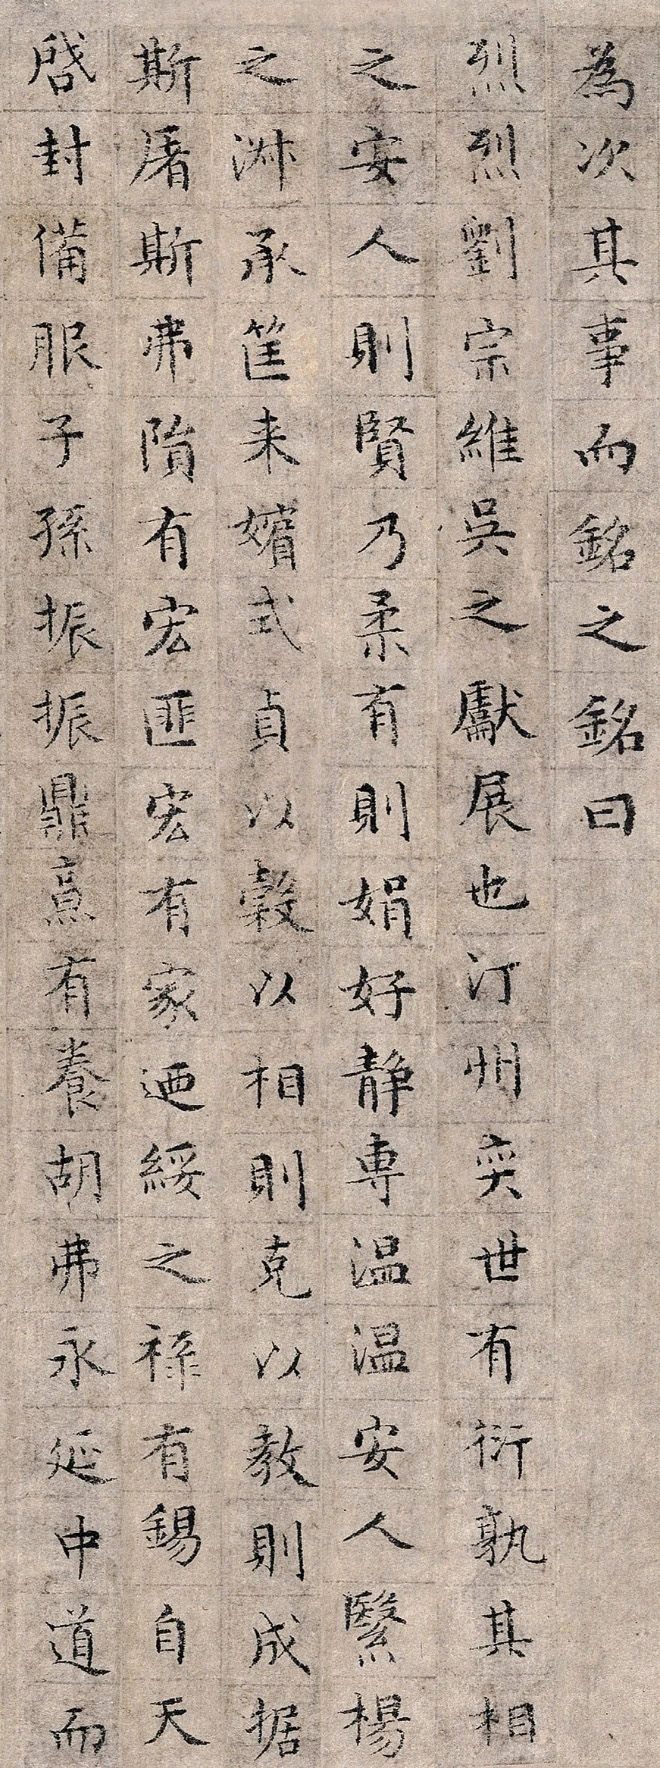 為次其事而銘之銘曰
烈烈劉宗維吳之獻展也汀州奕世有衍孰其相
之安人則賢乃柔有則娟好静專温温安人繄楊
之淋承筐来嬪式貞以榖以相則克以教則成据
斯屠斯弗隮有宏匪宏有家迺綏之禄有錫自天
啓封備服子孫振振鼎烹有養胡弗永延中道而